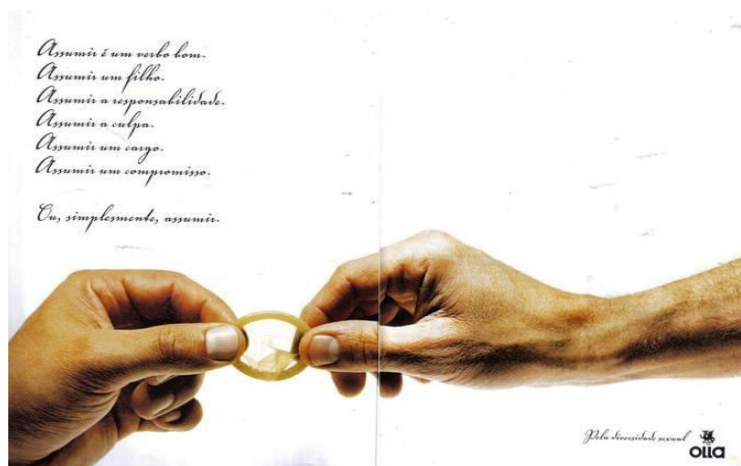 Assumir é um verbo bom.
Assumir um filho.
Assumir a responsabilidade.
Assumir a culpa.
Assumir um cargo.
Assumir um compromisso.
Ou, simplesmente, assumir.
Pela diversidade sexual
olla